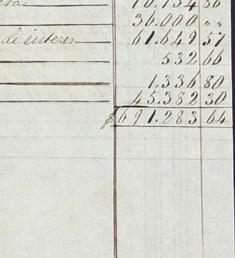 30.000 " "
de interes 61.649 57
532 66
1.336 80
45.382 30
$691.283 64